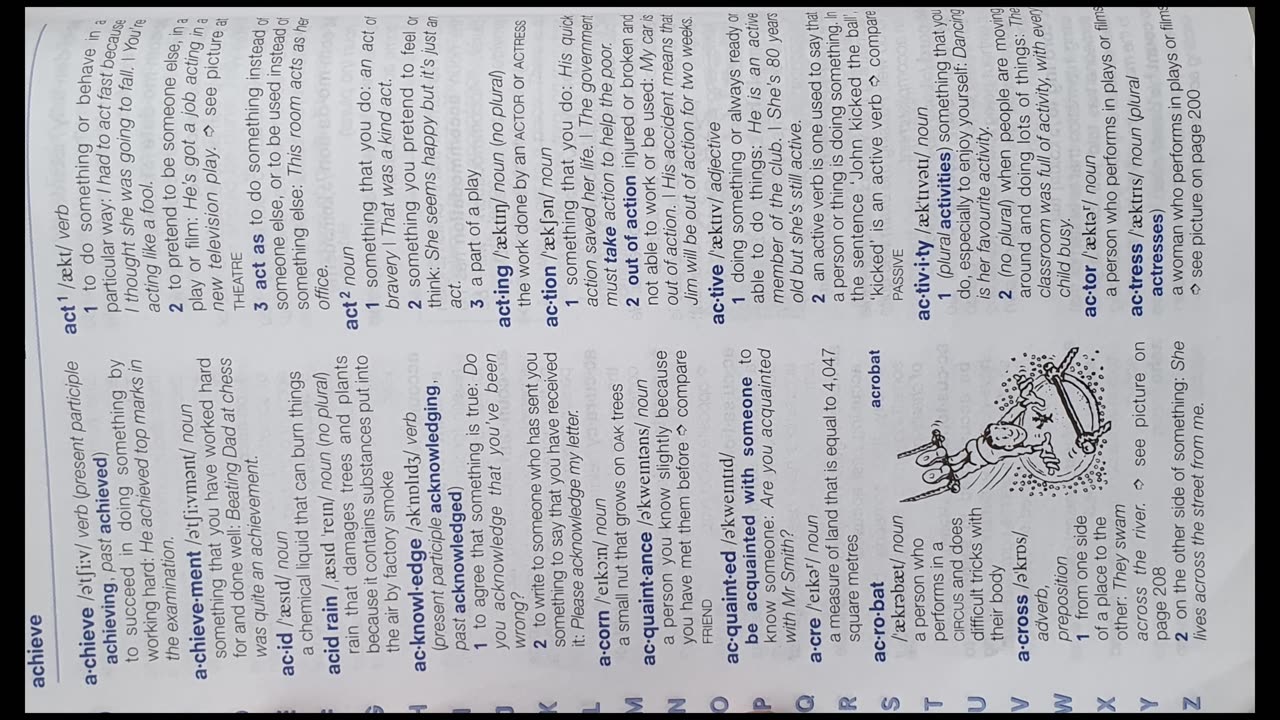 achieve
a·chieve /ətʃiːv/ verb (present participle
achieving, past achieved)
to succeed in doing something by
working hard: He achieved top marks in
the examination.
a·chieve·ment /ətʃiːvmənt/ noun
something that you have worked hard
for and done well: Beating Dad at chess
was quite an achievement.
ac·id /ˈæsɪd/ noun
a chemical liquid that can burn things
acid rain /ˌæsɪd ˈreɪn/ noun (no plural)
rain that damages trees and plants
because it contains substances put into
the air by factory smoke
ac·knowl·edge /əknɒlɪdʒ/ verb
(present participle acknowledging,
past acknowledged)
1 to agree that something is true: Do
you acknowledge that you've been
wrong?
2 to write to someone who has sent you
something to say that you have received
it: Please acknowledge my letter.
a·corn /ˈeɪkɔːn/ noun
a small nut that grows on OAK trees
ac·quaint·ance /əkweɪntəns/ noun
a person you know slightly because
you have met them before ➩ compare
FRIEND
ac·quaint·ed /əkweɪntɪd/
be acquainted with someone to
know someone: Are you acquainted
with Mr Smith?
a·cre /ˈeɪkəʳ/ noun
a measure of land that is equal to 4,047
square metres
ac·ro·bat
/ækrəbæt/ noun
a person who
performs in a
CIRCUS and does
difficult tricks with
their body
acrobat
a·cross /əkrɒs/
adverb,
preposition
1 from one side
of a place to the
other: They swam
across the river. ➩ see picture on
page 208
2 on the other side of something: She
lives across the street from me.
act¹ /ækt/ verb
1 to do something or behave in a
particular way: I had to act fast because
I thought she was going to fall. | You're
acting like a fool.
2 to pretend to be someone else, in a
play or film: He's got a job acting in a
new television play. ➩ see picture at
THEATRE
3 act as to do something instead of
someone else, or to be used instead of
something else: This room acts as her
office.
act² noun
1 something that you do: an act of
bravery | That was a kind act.
2 something you pretend to feel or
think: She seems happy but it's just an
act.
3 a part of a play
act·ing /æktɪŋ/ noun (no plural)
the work done by an ACTOR or ACTRESS
ac·tion /ækʃən/ noun
1 something that you do: His quick
action saved her life. | The government
must take action to help the poor.
2 out of action injured or broken and
not able to work or be used: My car is
out of action. | His accident means that
Jim will be out of action for two weeks.
ac·tive /æktɪv/ adjective
1 doing something or always ready or
able to do things: He is an active
member of the club. | She's 80 years
old but she's still active.
2 an active verb is one used to say that
a person or thing is doing something. In
the sentence 'John kicked the ball',
'kicked' is an active verb ➩ compare
PASSIVE
ac·tiv·i·ty /æktɪvətɪ/ noun
1 (plural activities) something that you
do, especially to enjoy yourself: Dancing
is her favourite activity.
2 (no plural) when people are moving
around and doing lots of things: The
classroom was full of activity, with every
child busy.
ac·tor /æktəʳ/ noun
a person who performs in plays or films
ac·tress /æktrɪs/ noun (plural
actresses)
a woman who performs in plays or films
➩ see picture on page 200
H
J
K
L
M
N
O
P
Q
R
S
T
U
V
W
X
Y
Z